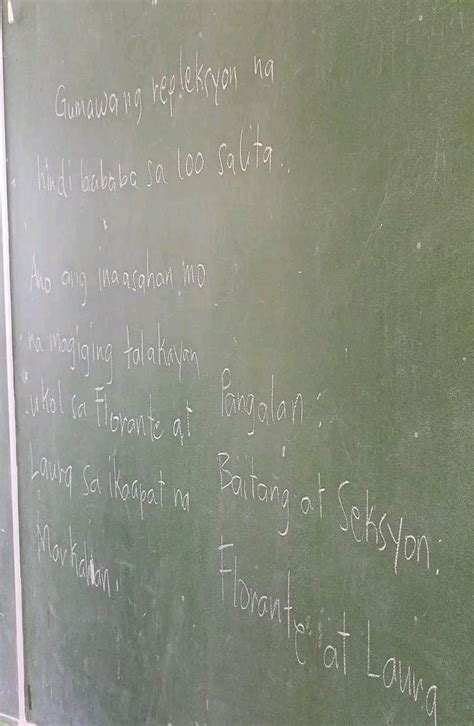 Gumawa ng repleksyon na
hindi bababa sa 100 salita.
Ano ang inaasahan mo
na magiging talakayan
ukol sa Florante at
Laura sa ikaapat na
Markahan.
Pangalan:
Baitang at Seksyon:
Florante at Laura